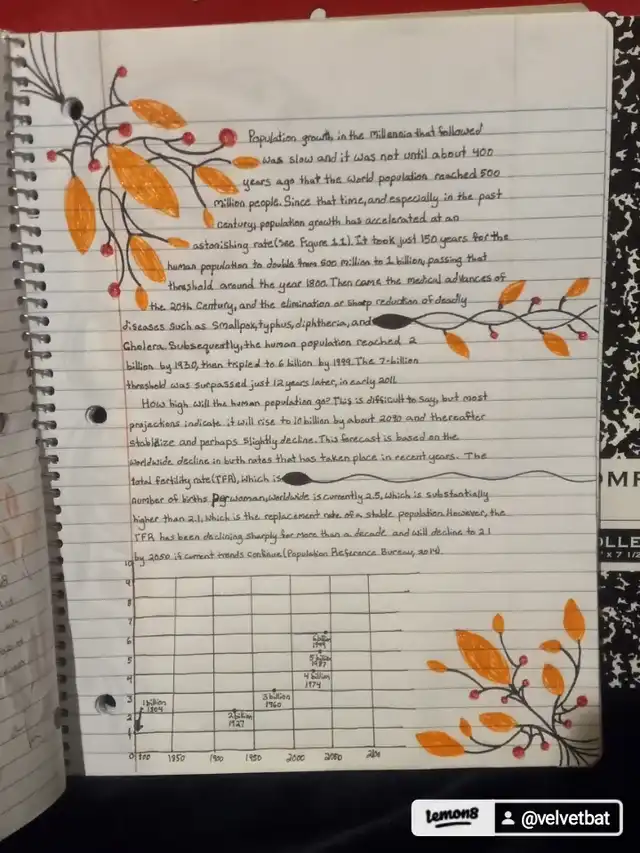 Population growth, in the millennia that followed
was slow and it was not until about 400
years ago that the world population reached 500
million people. Since that time, and especially in the past
century, population growth has accelerated at an
astonishing rate (see Figure 1.1). It took just 150 years for the
human population to double from 500 million to 1 billion, passing that
threshold around the year 1800. Then came the medical advances of
the 20th Century, and the elimination or sharp reduction of deadly
diseases such as Smallpox, typhus, diphtheria, and
Cholera. Subsequently, the human population reached 2
billion by 1930, then tripled to 6 billion by 1999. The 7-billion
threshold was surpassed just 12 years later, in early 2011.
How high will the human population go? This is difficult to say, but most
projections indicate it will rise to 10 billion by about 2080 and thereafter
stabilize and perhaps slightly decline. This forecast is based on the
worldwide decline in birth rates that has taken place in recent years. The
total fertility rate (TFR), which is
number of births per woman, worldwide is currently 2.5, which is substantially
higher than 2.1, which is the replacement rate of a stable population. However, the
TFR has been declining sharply for more than a decade and will decline to 2.1
by 2050 if current trends continue (Population Reference Bureau, 2014).
10
9
8
7
6
6 billion
1999
5
5 billion
1987
4
4 billion
1974
3
1 billion
1804
3 billion
1960
2
2 billion
1927
1
0
1850
1900
1950
2000
lemon8
@velvetbat